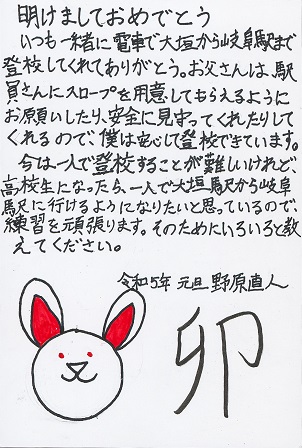 明けましておめでとう
いつも一緒に電車で大垣から岐阜駅まで
登校してくれてありがとう。お父さんは、駅
員さんにスロープを用意してもらえるように
お願いしたり、安全に見守ってくれたりして
くれるので、僕は安心して登校できています。
今は一人で登校することが難しいけれど、
高校生になったら、一人で大垣駅から岐阜
駅に行けるようになりたいと思っているので、
練習を頑張ります。そのためにいろいろと教
えてください。
令和5年 元旦 野原直人
卯